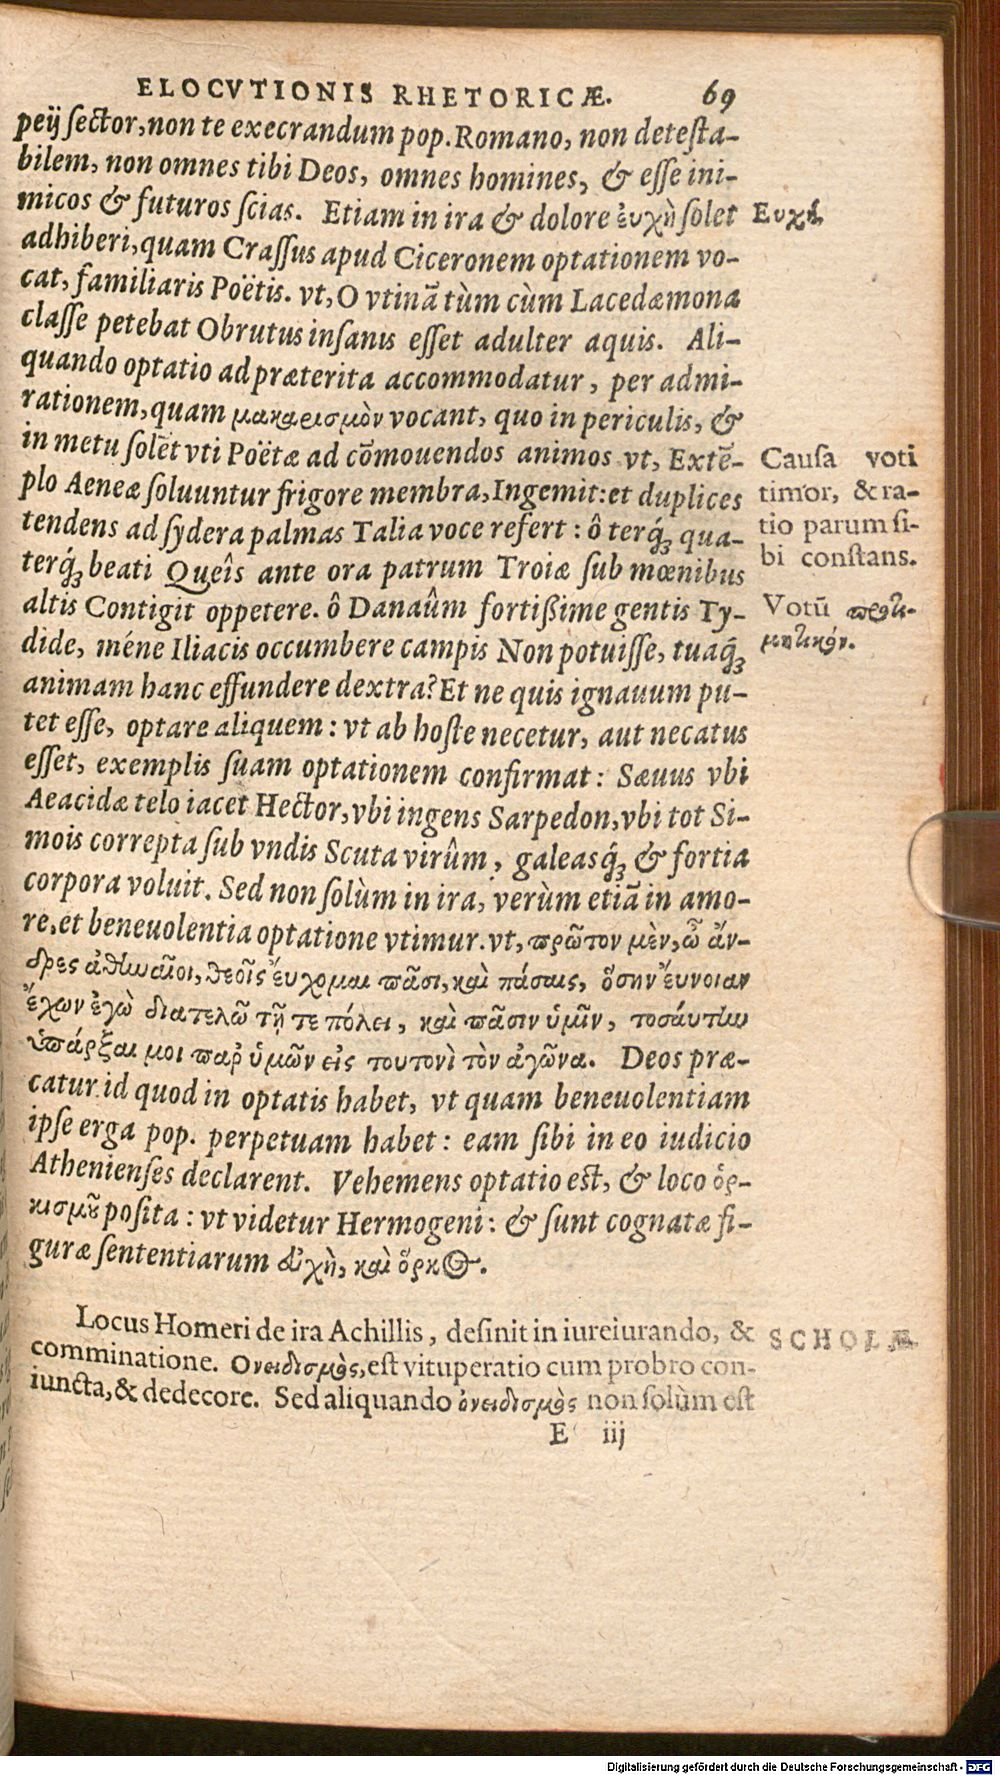 ELOCVTIONIS RHETORICÆ. 69
peij sector, non te execrandum pop. Romano, non detesta-
bilem, non omnes tibi Deos, omnes homines, & esse ini-
micos & futuros scias. Etiam in ira & dolore ἐυχὴ solet
Ευχή.
adhiberi, quam Crassus apud Ciceronem optationem vo-
cat, familiaris Poëtis. vt, O vtinā tùm cùm Lacedæmona
classe petebat Obrutus insanis esset adulter aquis. Ali-
quando optatio ad præterita accommodatur, per admi-
rationem, quam μακαρισμὸν vocant, quo in periculis, &
in metu solēt vti Poëtæ ad cōmouendos animos vt, Extē-
plo Aeneæ soluuntur frigore membra, Ingemit: et duplices
tendens ad sydera palmas Talia voce refert: ô terq́ꝫ qua-
terq́ꝫ beati Queîs ante ora patrum Troiæ sub mœnibus
altis Contigit oppetere. ô Danaûm fortißime gentis Ty-
dide, méne Iliacis occumbere campis Non potuisse, tuaq́ꝫ
animam hanc effundere dextra? Et ne quis ignauum pu-
tet esse, optare aliquem: vt ab hoste necetur, aut necatus
esset, exemplis suam optationem confirmat: Sæuus vbi
Aeacidæ telo iacet Hector, vbi ingens Sarpedon, vbi tot Si-
mois correpta sub vndis Scuta virûm, galeasq́ꝫ & fortia
corpora voluit. Sed non solùm in ira, verùm etiā in amo-
re, et beneuolentia optatione vtimur. vt, πρῶτον μὲν, ὦ ἄν-
δρες ἀθηναῖοι, θεοῖς ἔυχομαι πᾶσι, καὶ πάσαις, ὅσην ἔυνοιαν
ἔχων ἐγὼ διατελῶ τῇ τε πόλει, καὶ πᾶσιν ὑμῖν, τοσάυτην
ὑπάρξαι μοι παρ' ὑμῶν εἰς τουτονὶ τὸν ἀγῶνα. Deos præ-
catur id quod in optatis habet, vt quam beneuolentiam
ipse erga pop. perpetuam habet: eam sibi in eo iudicio
Athenienses declarent. Vehemens optatio est, & loco ὁρ-
κισμοῦ posita: vt videtur Hermogeni: & sunt cognatæ fi-
guræ sententiarum ἐυχὴ, καὶ ὅρκος.
Causa voti
timor, & ra-
tio parum si-
bi constans.
Votū πρακ-
μητικόν.
Locus Homeri de ira Achillis, desinit in iureiurando, &
SCHOLÆ
comminatione. Ονειδισμὸς, est vituperatio cum probro con-
iuncta, & dedecore. Sed aliquando ὀνειδισμὸς non solùm est
E iij
Digitalisierung gefördert durch die Deutsche Forschungsgemeinschaft - DFG